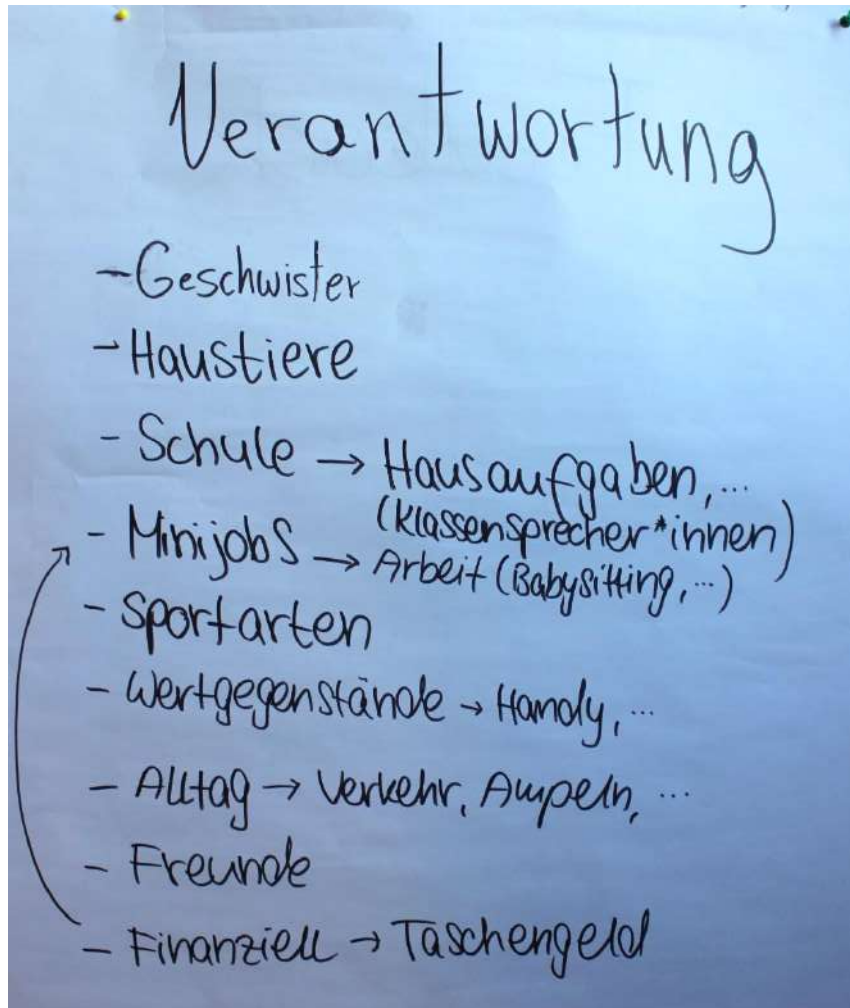 Verantwortung
- Geschwister
- Haustiere
- Schule → Hausaufgaben, ...
(Klassensprecher*innen)
- Minijobs → Arbeit (Babysitting, ...)
- Sportarten
- Wertgegenstände → Handy, ...
- Alltag → Verkehr, Ampeln, ...
- Freunde
- Finanziell → Taschengeld